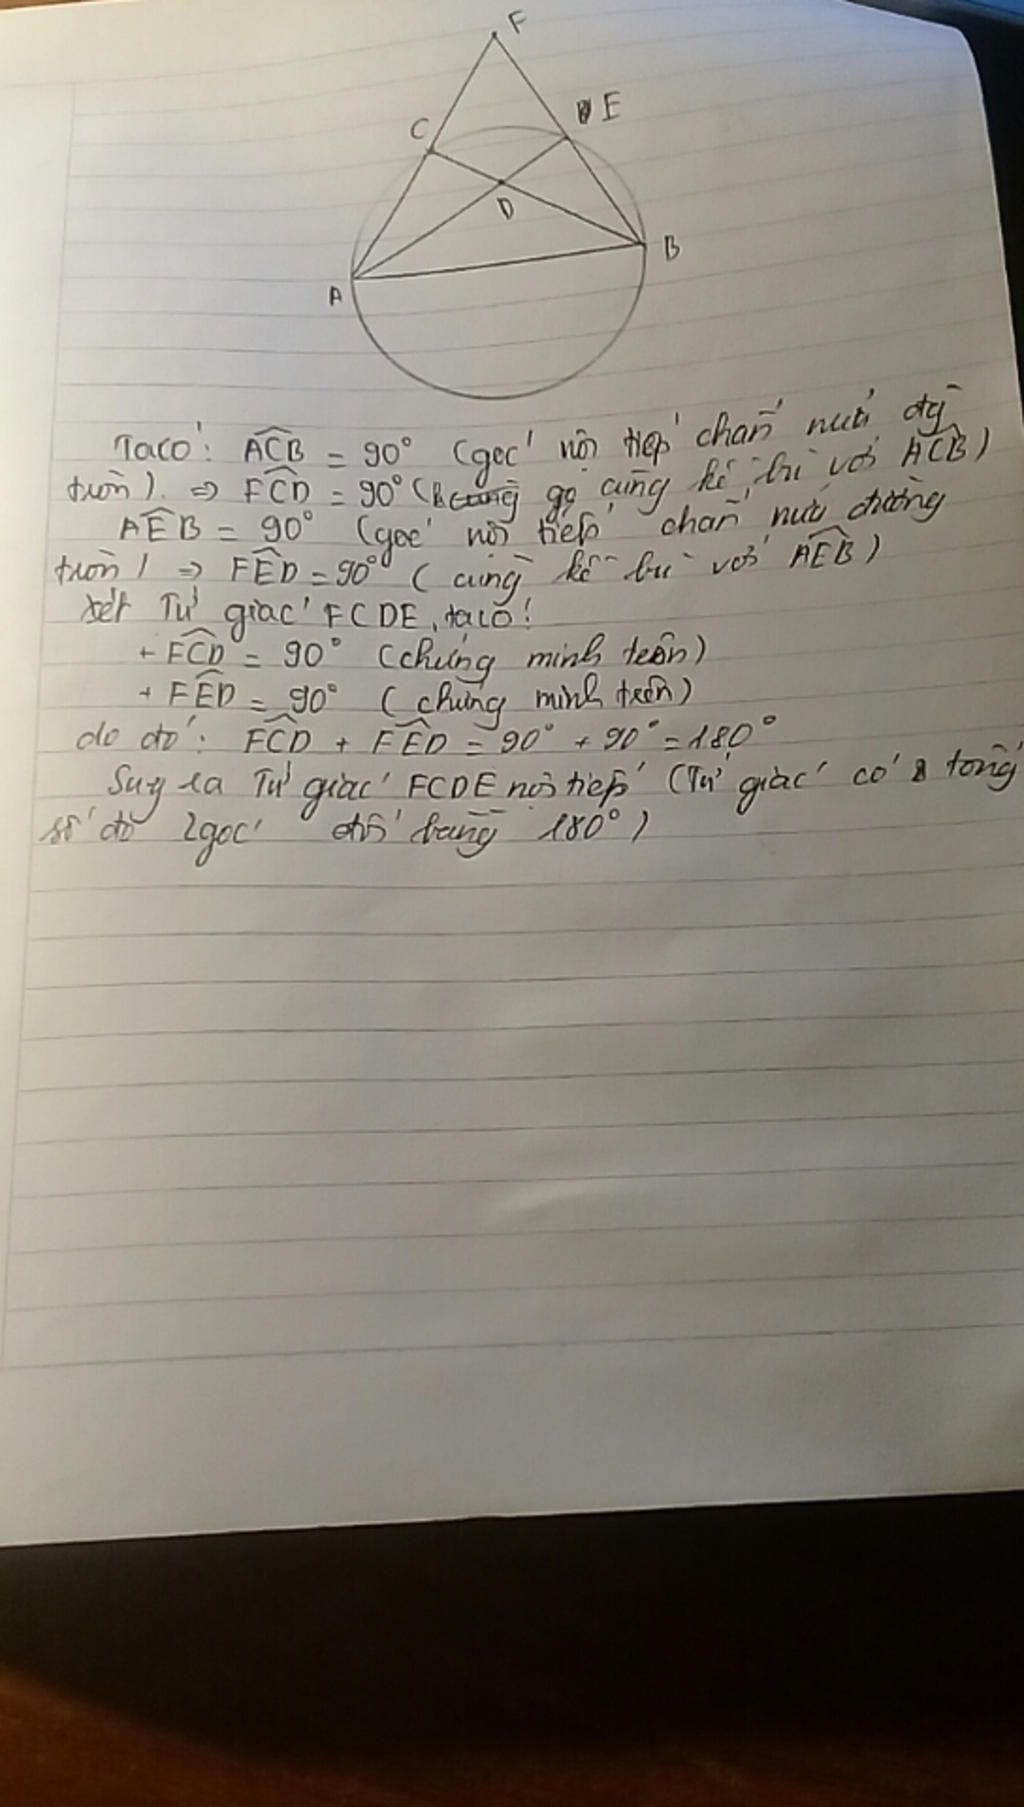 F
C
E
D
B
A
Ta có: ACB = 90° (góc nội tiếp chắn nửa đg
tròn). ⇒ FCD = 90° ( cùng kề bù với ACB)
AEB = 90° (góc nội tiếp chắn nửa đường
tròn) ⇒ FED = 90° ( cùng kề bù với AEB)
xét Tứ giác FCDE, ta có:
+ FCD = 90° (chứng minh trên)
+ FED = 90° ( chứng minh trên)
do đó: FCD + FED = 90° + 90° = 180°
Suy ra Tứ giác FCDE nội tiếp (Tứ giác có tổng
số đo 2 góc đối bằng 180°)